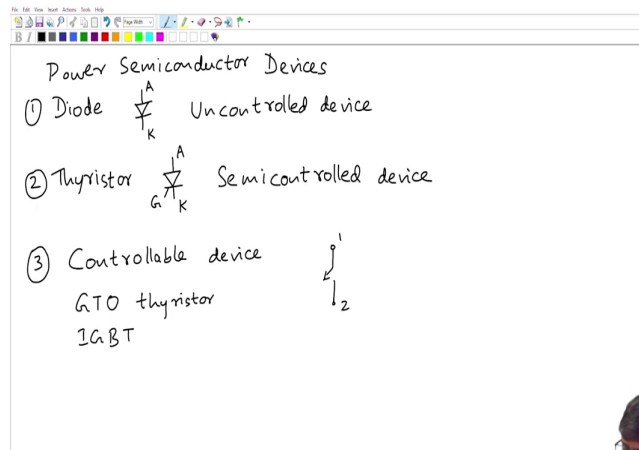 File Edit View Insert Actions Tools Help
Page Width
B I
Power Semiconductor Devices
① Diode A K Uncontrolled device
② Thyristor A G K Semicontrolled device
③ Controllable device 1
GTO thyristor 2
IGBT